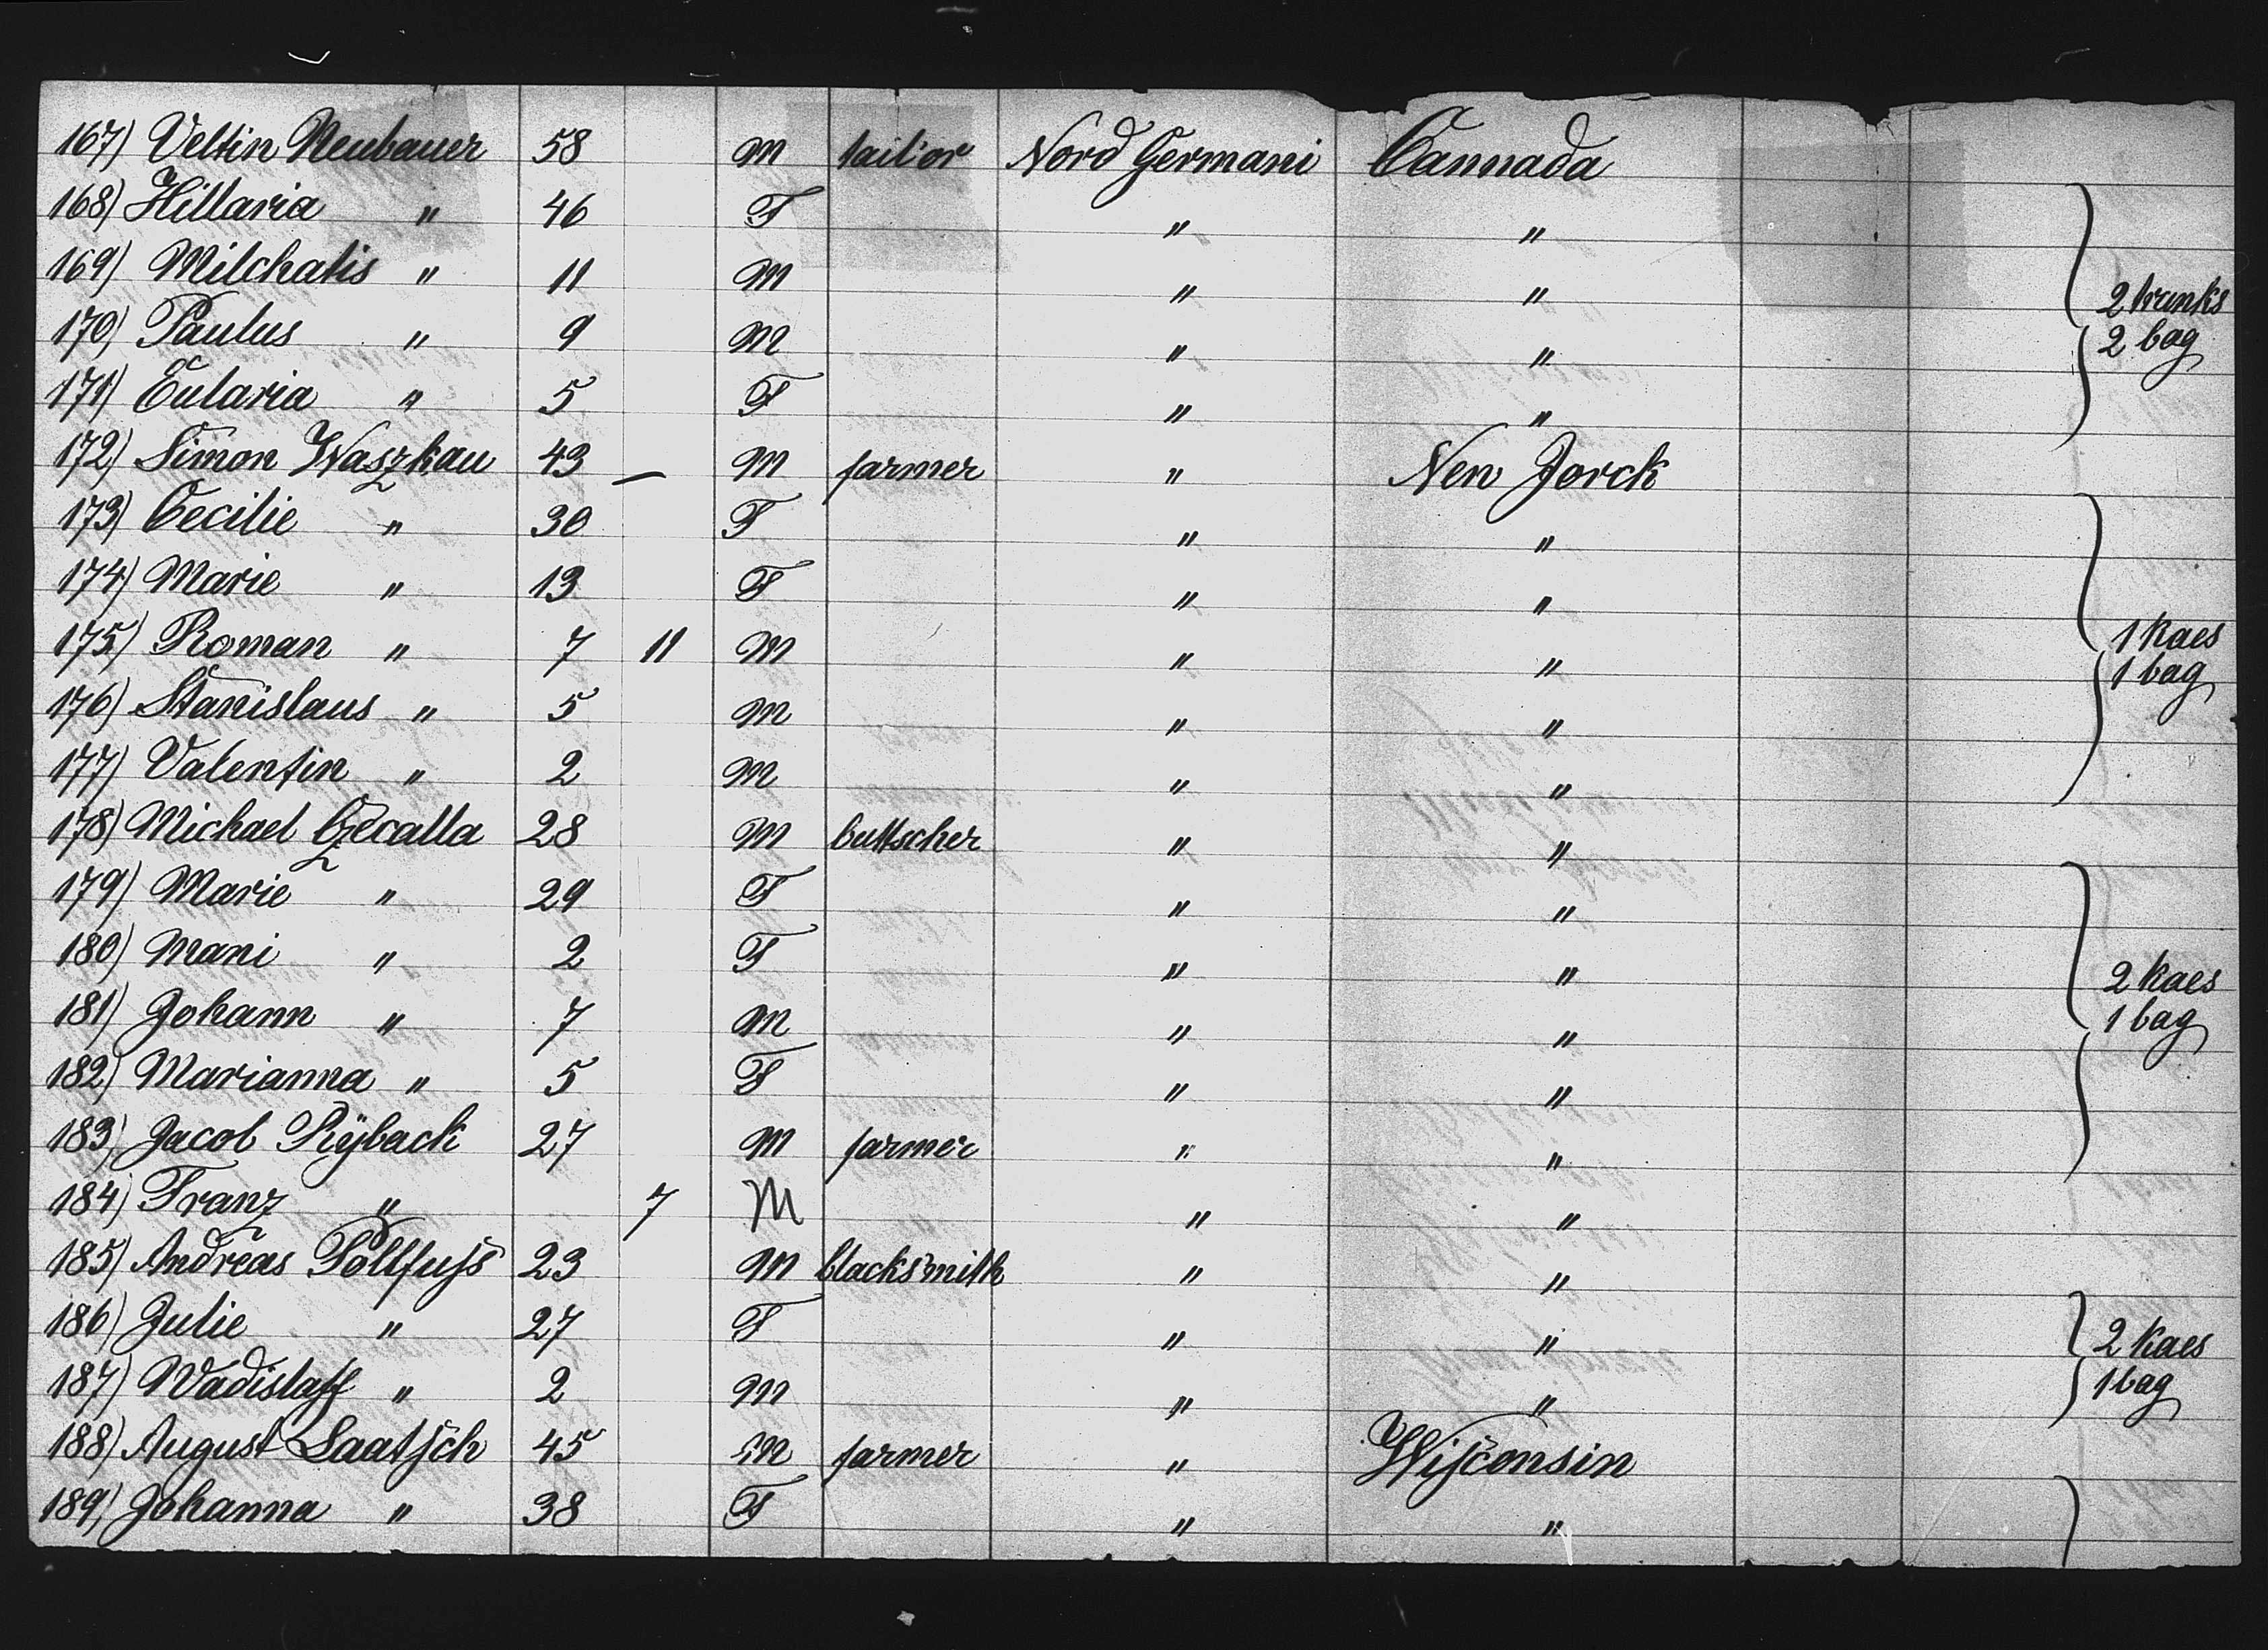 167) Veltin Neubauer 58 M tailor Nord Germani Cannada
168) Hillaria " 46 F " "
169) Milchatis " 11 M " " 2 trunks
170) Paulus " 9 M " " 2 bag
171) Eularia " 5 F " "
172) Simon Waszkau 43 — M farmer " New Jorck
173) Cecilie " 30 F " "
174) Marie " 13 F " "
175) Roman " 7 11 M " " 1 kaes
176) Stanislaus " 5 M " " 1 bag
177) Valentin " 2 M " "
178) Michael Czecalla 28 M buttscher " "
179) Marie " 29 F " "
180) Mani " 2 F " " 2 kaes
181) Johann " 7 M " " 1 bag
182) Marianna " 5 F " "
183) Jacob Rÿback 27 M farmer " "
184) Franz " 7 M " "
185) Andreas Pollfuss 23 M blacksmith " "
186) Julie " 27 F " " 2 kaes
187) Wadislaff " 2 M " " 1 bag
188) August Laatsch 45 M farmer " Wisconsin
189) Johanna " 38 F " "